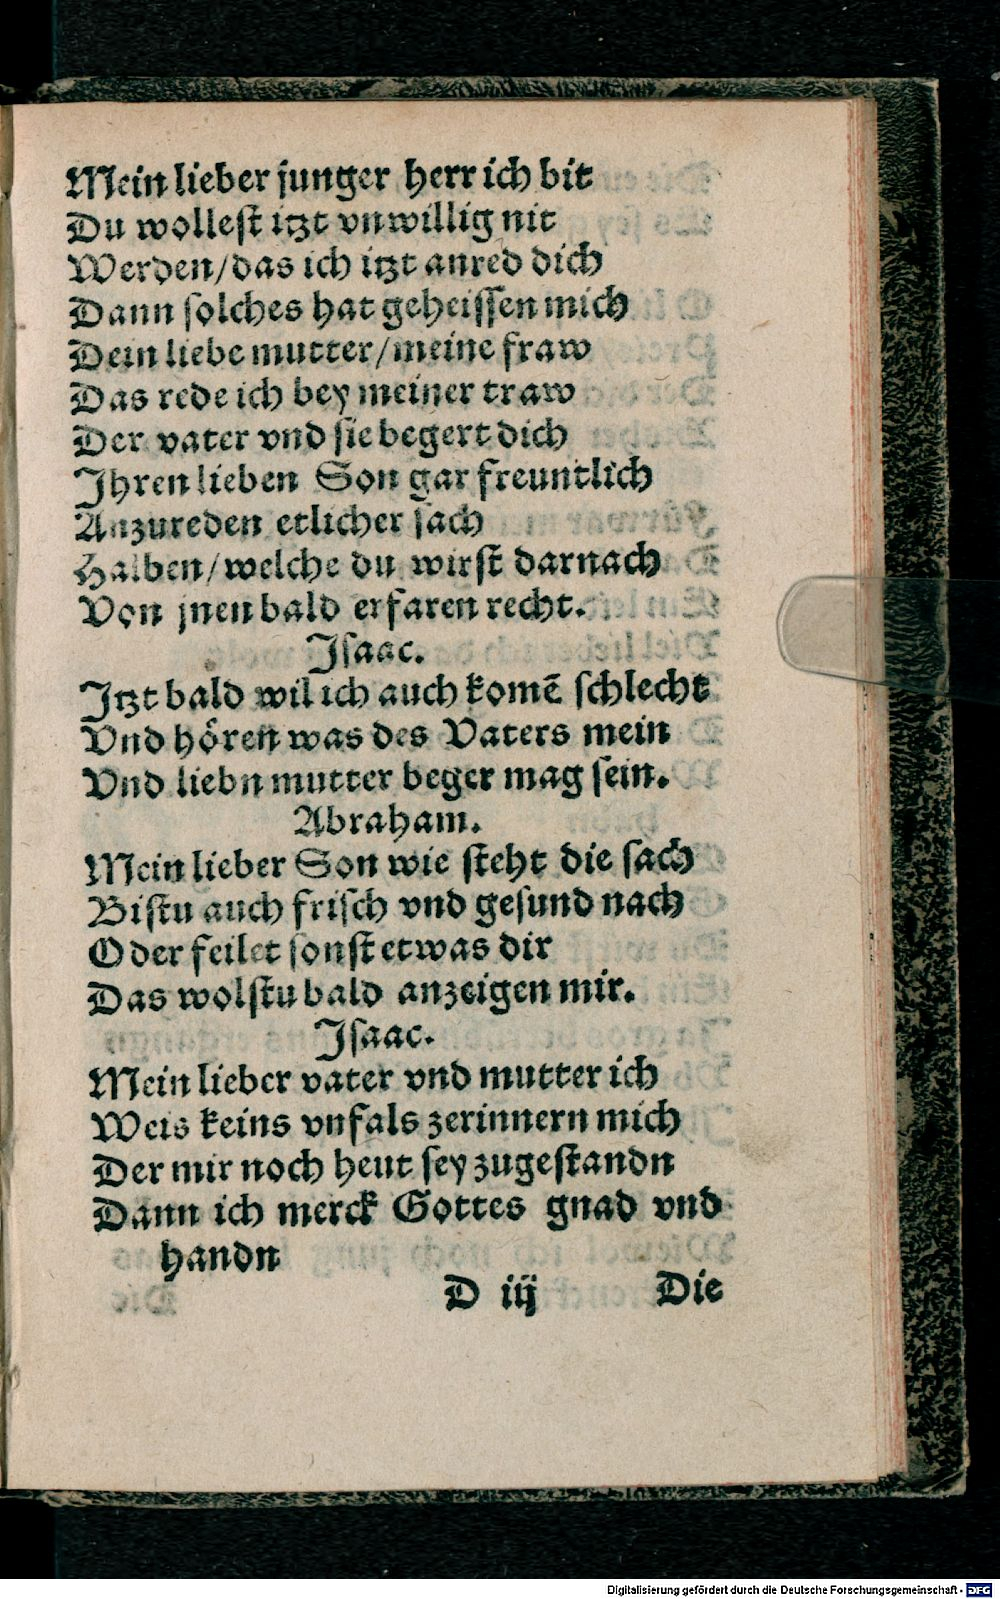 Mein lieber junger herr ich bit
Du wollest itzt vnwillig nit
Werden/das ich itzt anred dich
Dann solches hat geheissen mich
Dein liebe mutter/meine fraw
Das rede ich bey meiner traw
Der vater vnd sie begert dich
Ihren lieben Son gar freuntlich
Anzureden etlicher sach
Halben/welche du wirst darnach
Von jnen bald erfaren recht.
Isaac.
Itzt bald wil ich auch komē schlecht
Vnd hören was des Vaters mein
Vnd liebn mutter beger mag sein.
Abraham.
Mein lieber Son wie steht die sach
Bistu auch frisch vnd gesund nach
Oder feilet sonst etwas dir
Das wolstu bald anzeigen mir.
Isaac.
Mein lieber vater vnd mutter ich
Weis keins vnfals zerinnern mich
Der mir noch heut sey zugestandn
Dann ich merck Gottes gnad vnd
handn
D iij Die
Digitalisierung gefördert durch die Deutsche Forschungsgemeinschaft - DFG